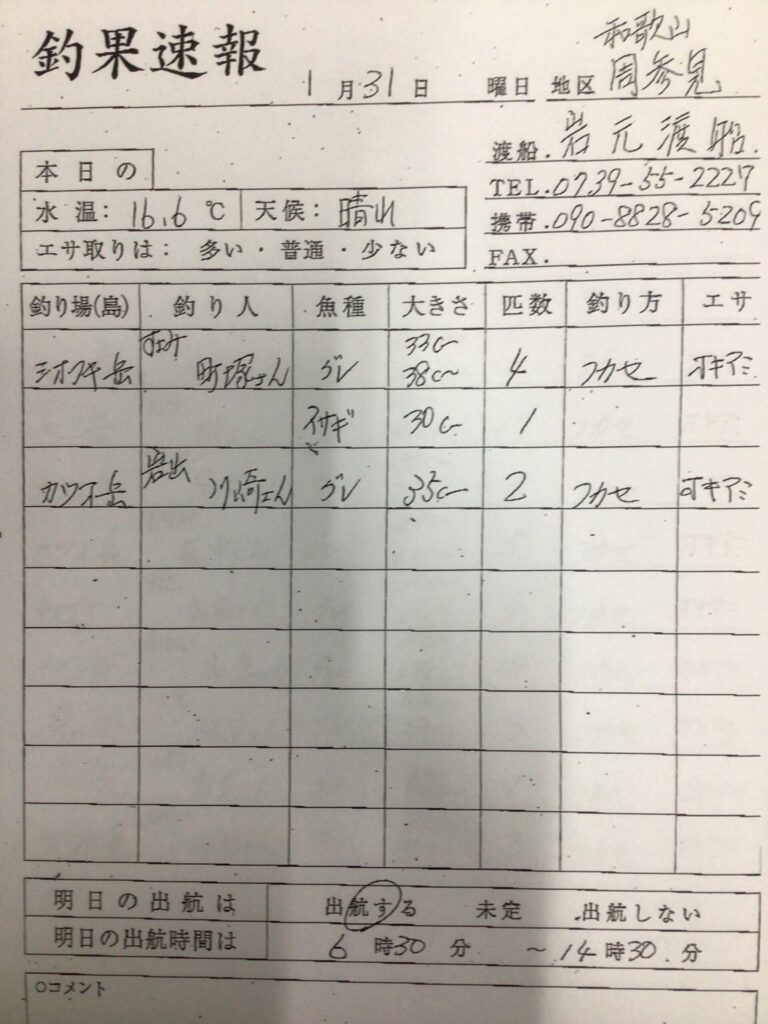 釣果速報
和歌山
1月31日 曜日 地区 周参見
渡船. 岩元渡船
TEL. 0739-55-2227
携帯. 090-8828-5209
FAX.
本日の
水温: 16.6℃ 天候: 晴れ
エサ取りは: 多い・普通・少ない
釣り場(島) 釣り人 魚種 大きさ 匹数 釣り方 エサ
シオフキ岳 町塚さん グレ 33㎝ 38㎝ 4 フカセ オキアミ
イサギ 30㎝ 1
カツオ岳 岩出 川崎さん グレ 35㎝ 2 フカセ オキアミ
明日の出航は 出航する 未定 出航しない
明日の出航時間は 6時30分 〜14時30分
○コメント